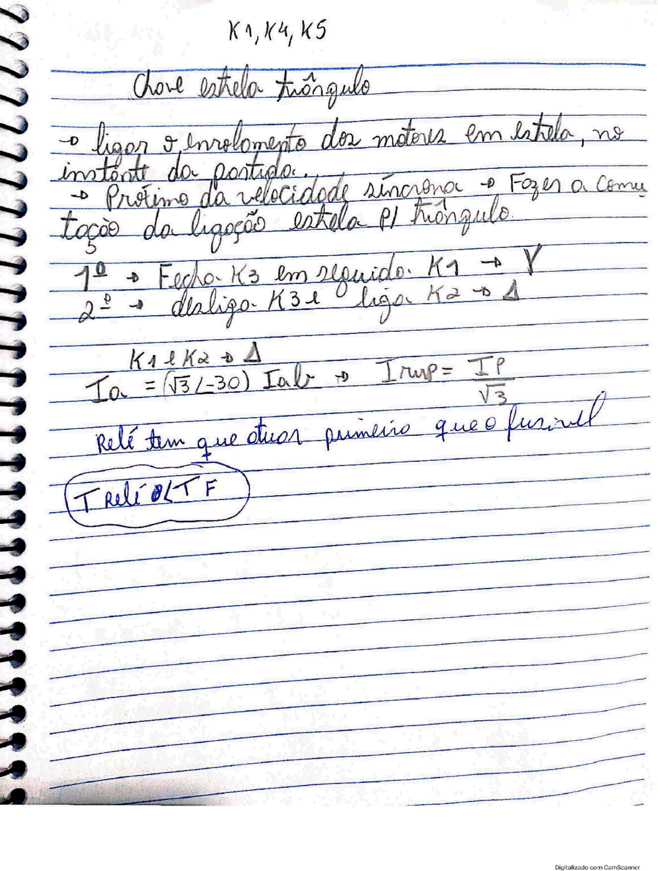 K1, K4, K5
Chave estrela triângulo
→ ligar o enrolamento dos motores em estrela, no
instante da partida.
→ Próximo da velocidade síncrona → Fazer a comu
tação da ligação estrela p/ triângulo.
1º → Fecha K3 em seguida K1 → Y
2º → desliga K3 e liga K2 → Δ
K1 e K2 → Δ
Ia = (√3 ∠-30) Iab → = IP
√3
Relé tem que atuar primeiro que o fusível
T Relé < T F
Digitalizado com CamScanner